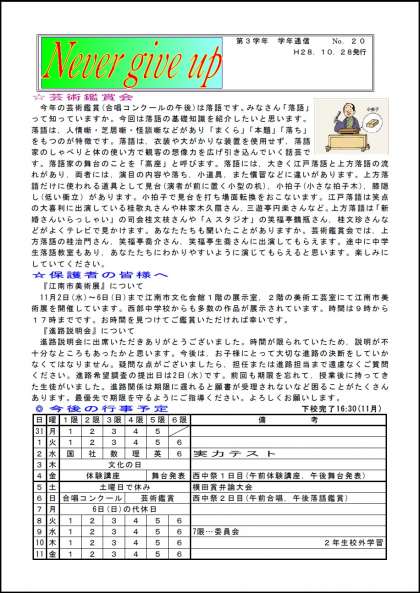 第３学年　学年通信　Ｎｏ．２０
Never give up
Ｈ２８．１０．２８発行
☆芸術鑑賞会
今年の芸術鑑賞（合唱コンクールの午後）は落語です。みなさん「落語」
って知っていますか。今回は落語の基礎知識を紹介したいと思います。
小拍子
落語は、人情噺・芝居噺・怪談噺などがあり「まくら」「本題」「落ち」
をもつのが特徴です。落語は、衣装や大がかりな装置を使用せず、落語
家のしゃべりと体の使い方で観客の想像力を広げ引き込んでいく話芸で
す。落語家の舞台のことを「高座」と呼びます。落語には、大きく江戸落語と上方落語の流
れがあり、両者には、演目の内容や落ち、小道具、また慣習などに違いがあります。上方落
語だけに使われる道具として見台（演者が前に置く小型の机）、小拍子（小さな拍子木）、膝隠
し（低い衝立）があります。小拍子で見台を打ち場面転換をおこないます。江戸落語は笑点
の大喜利に出演している桂歌丸さんや林家木久扇さん、三遊亭円楽さんなど。上方落語は「新
婚さんいらっしゃい」の司会桂文枝さんや「Ａスタジオ」の笑福亭鶴瓶さん、桂文珍さんな
どがよくテレビで見かけます。あなたたちも聞いたことがありますか。芸術鑑賞会では、上
方落語の桂治門さん、笑福亭喬介さん、笑福亭生喬さんに出演してもらえます。途中に中学
生落語教室もあり、あなたたちにわかりやすいように演じてもらえると思います。楽しみに
していてください。
☆保護者の皆様へ
『江南市美術展』について
11月2日(水)～6日(日)まで江南市文化会館１階の展示室、２階の美術工芸室にて江南市美
術展を開催しています。西部中学校からも多数の作品が展示されています。時間は９時から
１７時までです。お時間を見つけてご鑑賞いただければ幸いです。
『進路説明会』について
進路説明会に出席いただきありがとうございました。時間が限られていたため、説明が不
十分なところもあったかと思います。今後は、お子様にとって大切な進路の決断をしていか
なくてはなりません。疑問な点がございましたら、担任または進路担当まで遠慮なくご質問
ください。進路希望調査の提出日は2日(水)です。前回も期限を忘れて、授業後に持ってき
た生徒がいました。進路関係は期限に遅れると願書が受理されないなど困ることがたくさん
あります。最優先で期限を守るようにご指導ください。よろしくお願いします。
◎今後の行事予定　下校完了16:30(11月)
日 曜 １限 ２限 ３限 ４限 ５限 ６限 備　考
31 月 1 2 3 4 5
1 火 1 2 3 4 5 6
2 水 国 社 数 理 英 6 実力テスト
3 木 文化の日
4 金 体験講座 舞台発表 西中祭１日目（午前体験講座、午後舞台発表）
5 土 土曜日で休み 横田賞弁論大会
6 日 合唱コンクール 芸術鑑賞 西中祭２日目（午前合唱、午後落語鑑賞）
7 月 6日(日)の代休日
8 火 1 2 3 4 5 6
9 水 1 2 3 4 5 6 7限…委員会
10 木 1 2 3 4 5 6 ２年生校外学習
11 金 1 2 3 4 5 6